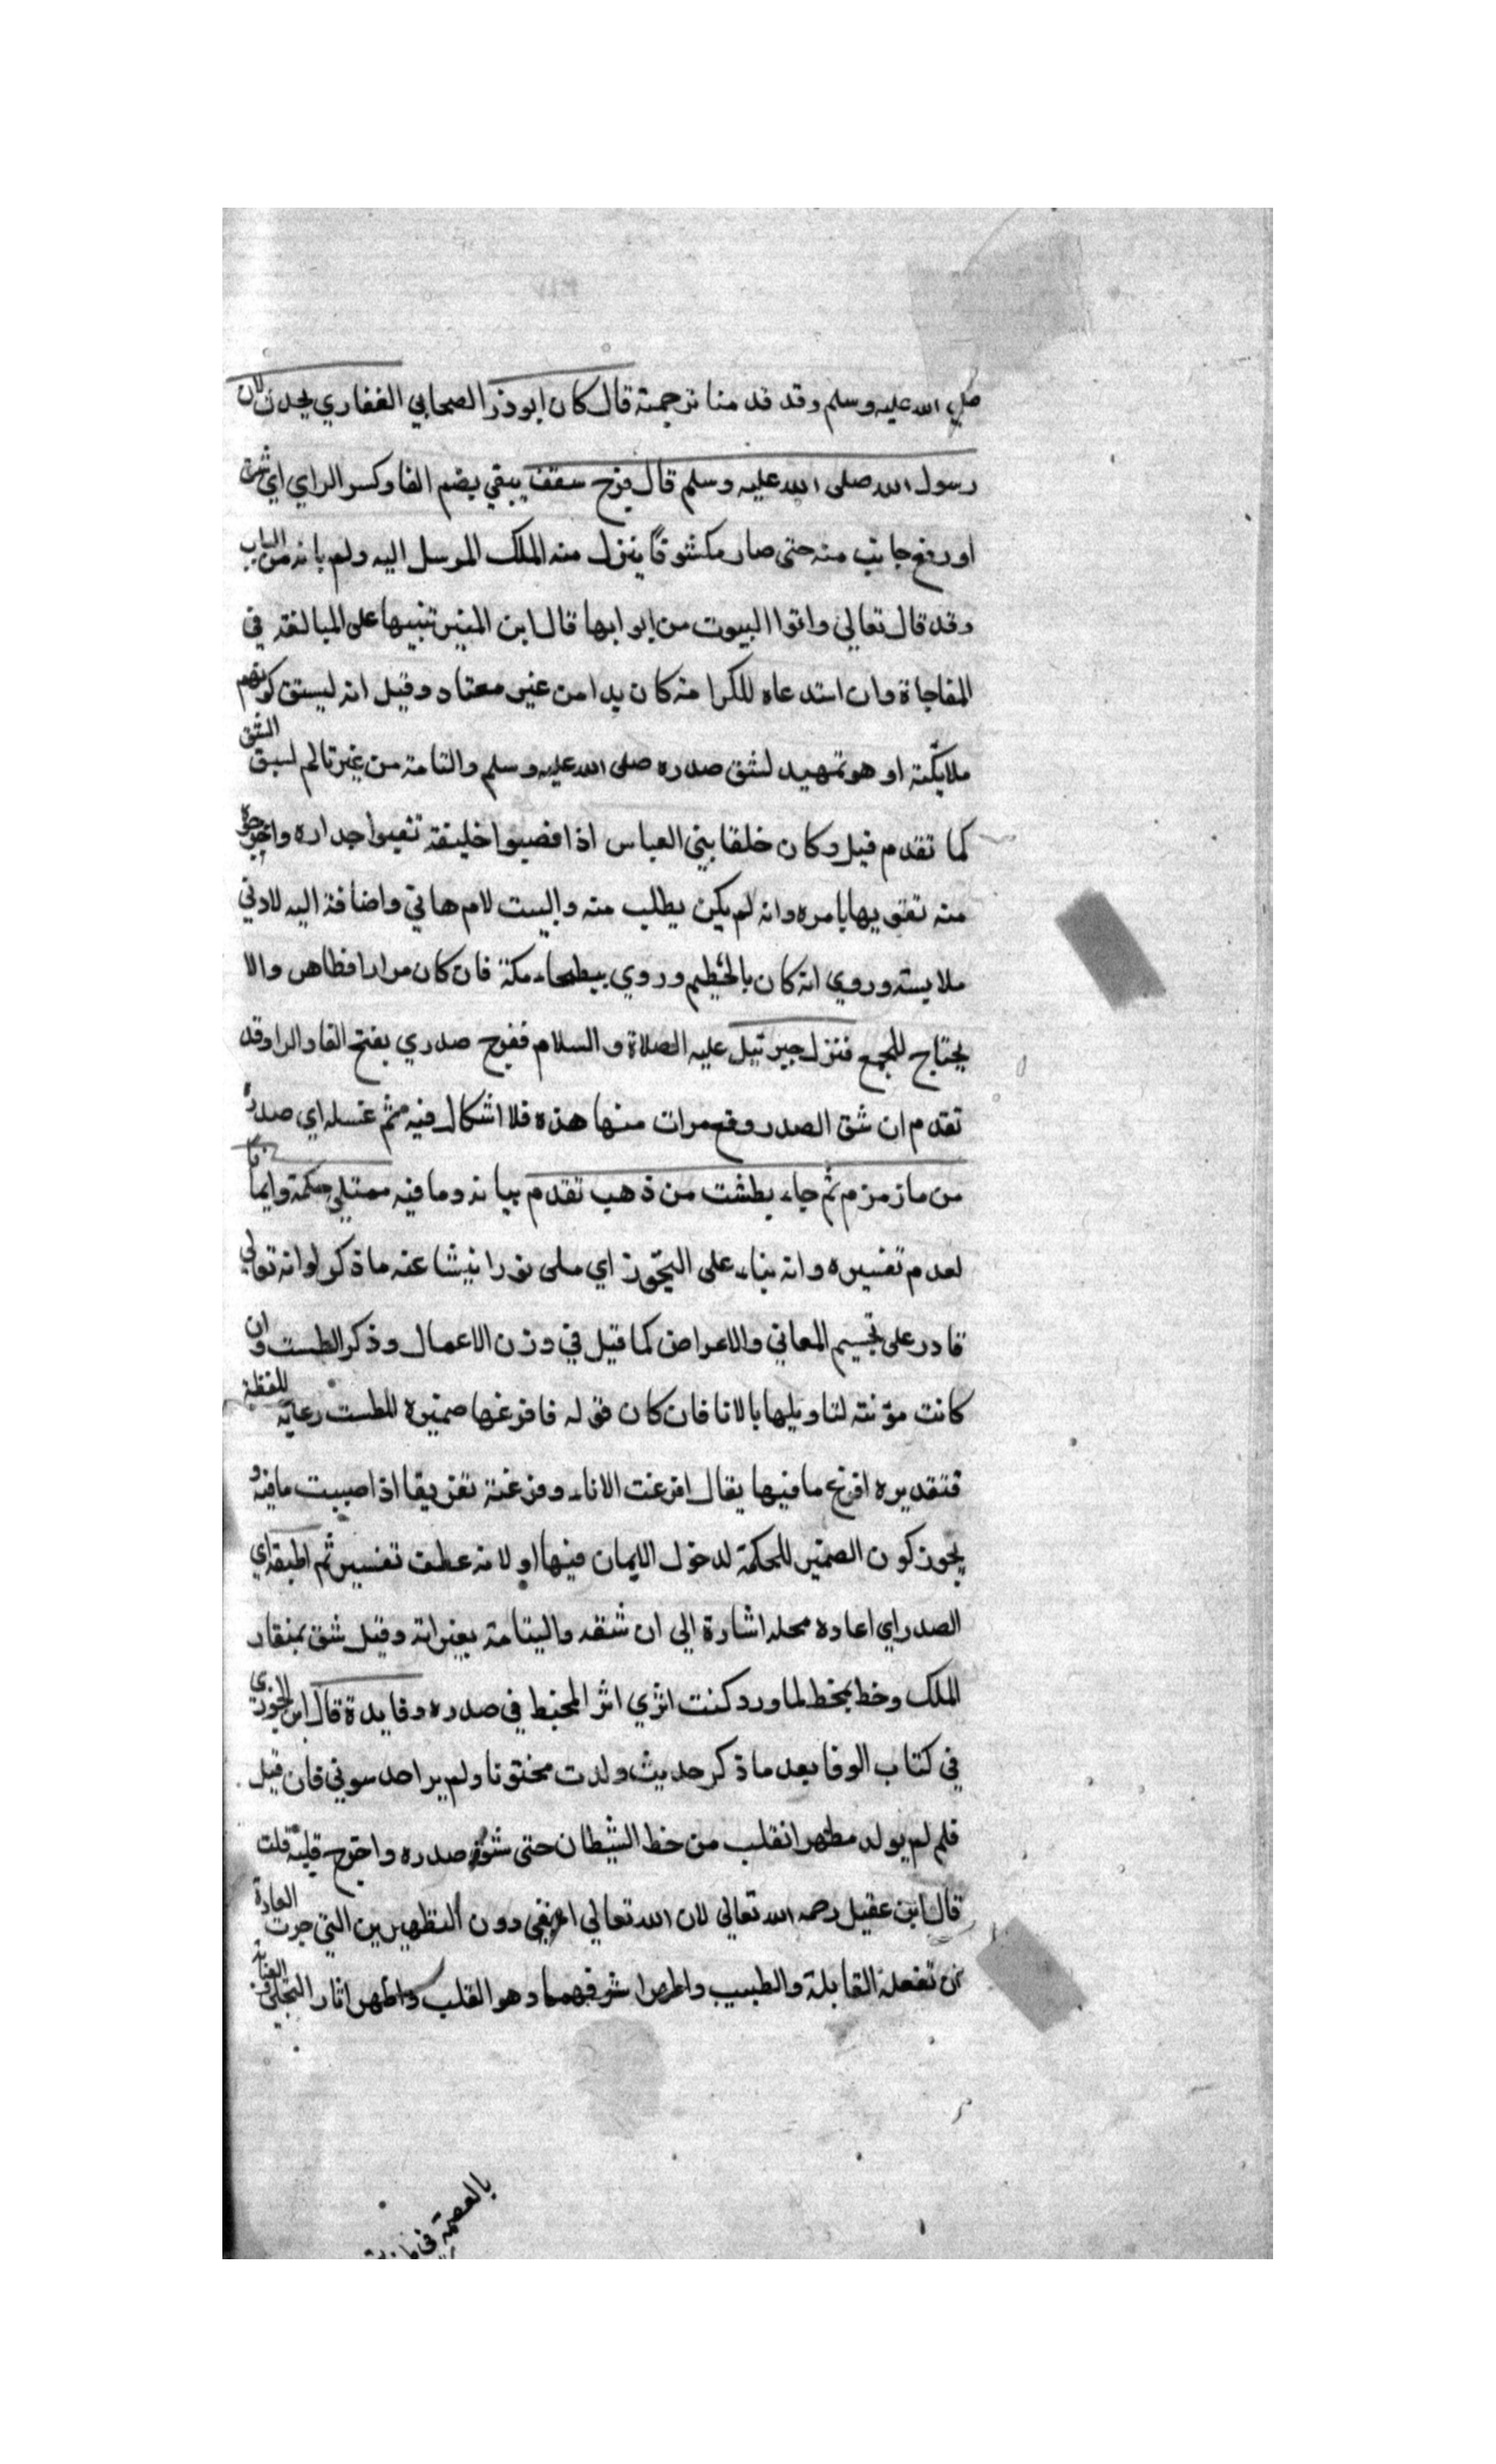 صلي الله عليه وسلم وقد قدمنا ترجمته قال كان ابوذر الصحابي الغفاري يحدث ان
رسول الله صلى الله عليه وسلم قال فرج سقف بيتي بضم الفا وكسر الراي اي شق
او رفع جانب منه حتى صار مكشوفا ينزل منه الملك المرسل اليه ولم ياته من الباب
وقد قال تعالي واتوا البيوت من ابوابها قال ابن المنير تنبيها على المبالغة في
المفاجاة وان استدعاه للكرامة كان بدا من غير معتاد وقيل انه ليستق كونهم
ملايكة او هو تمهيد لشق صدره صلى الله عليه وسلم والتامه من غير تالم لسبق الشق
كما تقدم قيل وكان خلفا بني العباس اذا نصبوا خليفة نقبوا جداره واخرجوه
منه تنويها بامره وانه لم يكن يطلب منه والبيت لام هاني واضافة اليه لادني
ملابسته وروي انه كان بالحطيم وروي ببطحاء مكة فان كان مرارا فظاهر والا
يحتاج للجمع فنزل جبرئيل عليه الصلاة والسلام ففرج صدري بفتح الفا والرا وقد
تقدم ان شق الصدر وقع مرات منها هذه فلا اشكال فيه ثم غسله اي صدره
من ماز مزم ثم جاء بطشت من ذهب تقدم بيانه وما فيه ممتلي حكمة وايمانا
لعدم تفسيره وانه بناء على التجوز اي ملى نورا ينشا عنه ما ذكر او انه تعالي
قادر على تجسيم المعاني والاعراض كما قيل في وزن الاعمال وذكر الطست وان
كانت مؤنثه لتاويلها بالانا فان كان قوله فافرغها ضميره للطست رعاية للفظه
فتقديره افرغ ما فيها يقال افرغت الاناء وفرغته تفريغا اذا صببت ما فيه و
يجوز كون الضمير للحكمة لدخول الايمان فيها او لانه عطف تفسير ثم اطبقه اي
الصدر اي اعاده محله اشارة الي ان شقه والتيامه بغير الة وقيل شق بمنقار
الملك وخط بمخط لما ورد كنت اري اثر المخيط في صدره وفايدة قال ابن الجوزي
في كتاب الوفا بعد ما ذكر حديث ولدت مختونا ولم ير احد سوتي فان قيل
فلم لم يولد مطهر القلب من خط الشيطان حتى شق صدره واخرج قلبه قلت
قال ابن عقيل رحمه الله تعالي لان الله تعالي اخفي دون التطهيرين التي جرت العادة
ان تفعله القابلة والطبيب واظهر اشرفهما وهو القلب واظهر اثار التجلي والعناية
بالعصمة في